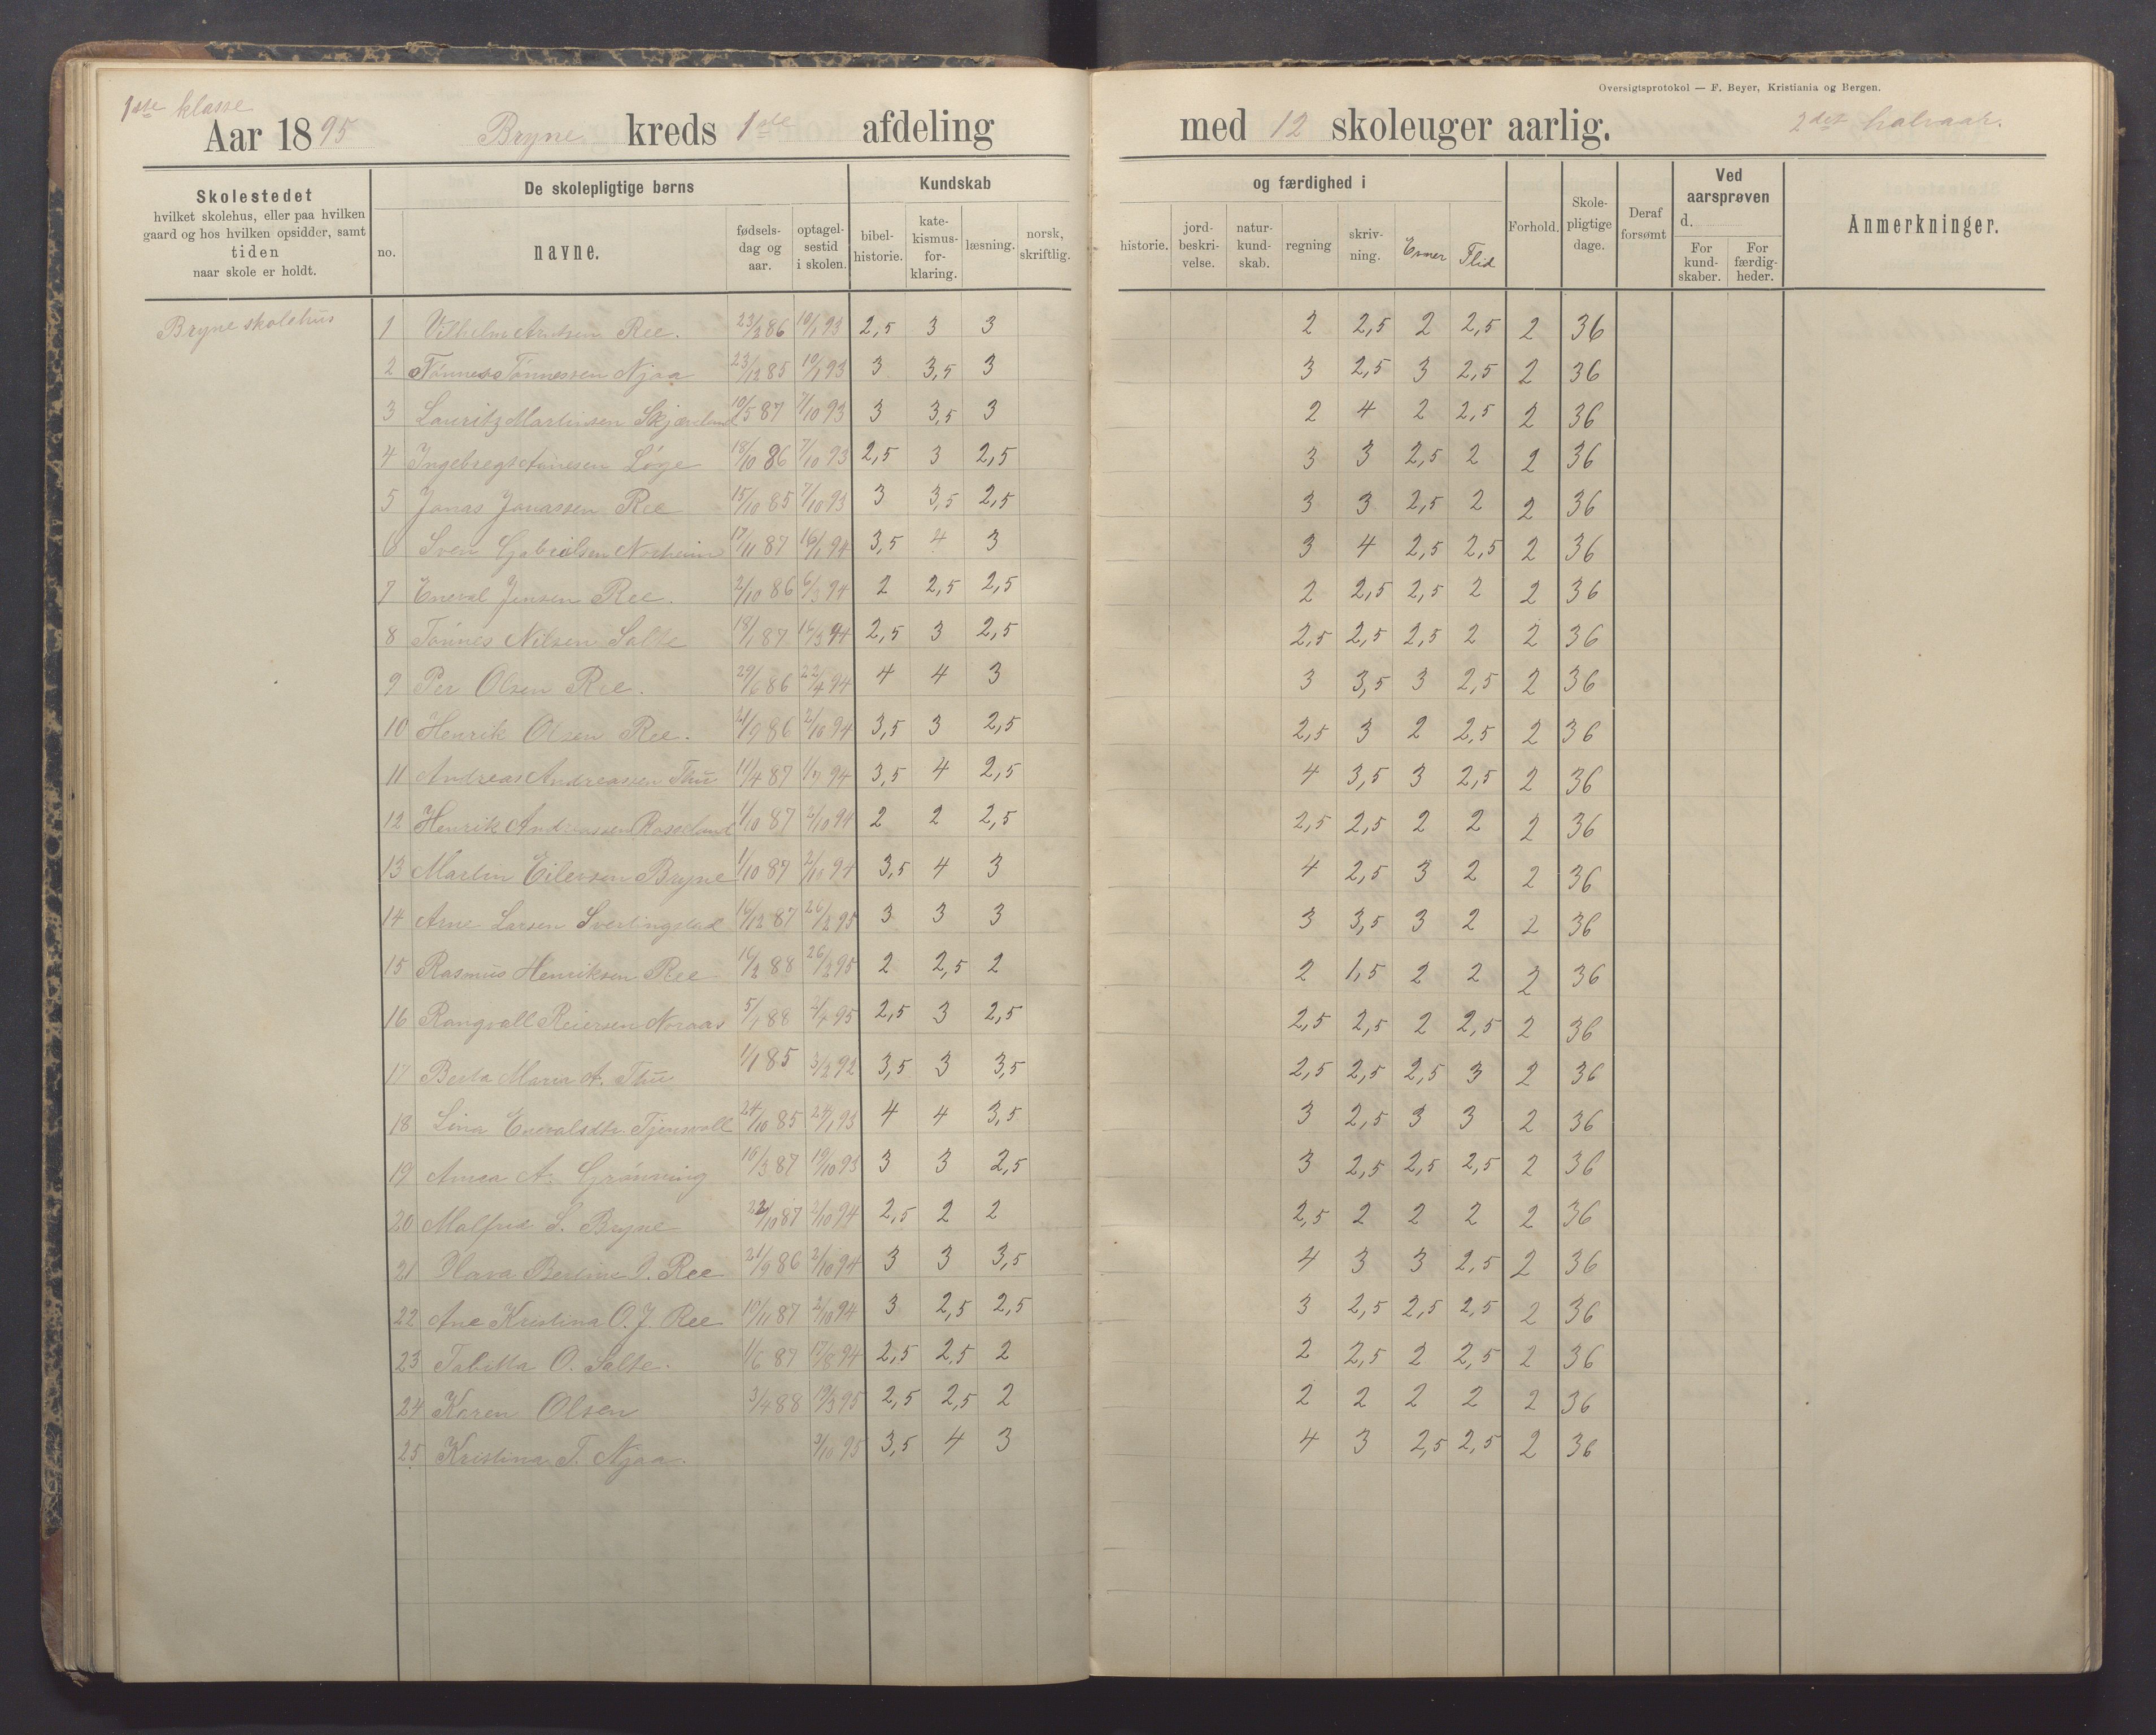 Oversigtsprotokol — F. Beyer, Kristiania og Bergen.
1ste klasse
Aar 1895 Bryne kreds 1ste afdeling med 12 skoleuger aarlig. 2det halvaar.
Skolestedet hvilket skolehus, eller paa hvilken gaard og hos hvilken opsidder, samt tiden naar skole er holdt.
De skolepligtige børns
no. navne. fødsels-dag og aar. optagel-sestid i skolen.
Kundskab og færdighed i
bibel-historie. kate-kismus-for-klaring. læsning. norsk, skriftlig. historie. jord-beskri-velse. natur-kund-skab. regning skriv-ning. Evner Flid
Forhold. Skole-pligtige dage. Deraf forsømt
Ved aarsprøven d.
For kund-skaber. For færdig-heder.
Anmerkninger.
Bryne skolehus
1 Vilhelm Arntsen Ree. 23/3 86 10/1 93 2,5 3 3 2 2,5 2 2,5 2 36
2 Tönnes Tönnessen Njaa 23/12 85 10/1 93 3 3,5 3 3 2,5 3 2,5 2 36
3 Lauritz Martinsen Skjærelund 10/5 87 7/10 93 3 3,5 3 2 4 2 2,5 2 36
4 Ingebregt Løge 18/10 86 7/10 93 2,5 3 2,5 3 3 2,5 2 2 36
5 Jonas Jonassen Ree 15/10 85 7/10 93 3 3,5 2,5 3 3 2,5 2 2 36
6 Sven Gabrielsen Norheim 17/11 87 16/1 94 3,5 4 3 3 4 2,5 2,5 2 36
7 Eneval Jensen Ree. 2/10 86 6/3 94 2 2,5 2,5 2 2,5 2,5 2 2 36
8 Tönnes Nilsen Salte 18/1 87 16/3 94 2,5 3 2,5 2,5 2,5 2,5 2 2 36
9 Per Olsen Ree. 29/6 86 22/4 94 4 4 3 3 3,5 3 2,5 2 36
10 Henrik Olsen Ree. 21/9 86 2/10 94 3,5 3 2,5 2,5 3 2 2,5 2 36
11 Andreas Andreassen Thu 11/4 87 94 3,5 4 2,5 4 3,5 3 2,5 2 36
12 Henrik Andreassen Roseland 1/10 87 2/10 94 2 2 2,5 2,5 2,5 2 2 2 36
13 Martin Eilersen Bryne 1/10 87 2/10 94 3,5 4 3 4 2,5 3 2 2 36
14 Arne Larsen Sverlingstad 16/12 87 26/2 95 3 3 3 3 3,5 3 2 2 36
15 Rasmus Henriksen Ree 16/2 88 26/2 95 2 2,5 2 2 1,5 2 2 2 36
16 Rangvall Reiersen Noraas 5/1 88 95 2,5 3 2,5 2,5 2,5 2 2,5 2 36
17 Berta Maria A. Thu 1/1 85 3/2 92 3,5 3 3,5 2,5 2,5 2,5 3 2 36
18 Lina Enevalsdtr. Tjensvoll 24/10 85 24/1 93 4 4 3,5 3 2,5 3 3 2 36
19 Anna A. Grönning 16/3 87 19/10 93 3 3 2,5 3 2,5 2,5 2,5 2 36
20 Malfrid S. Bryne 22/10 87 2/10 94 2,5 2 2 2,5 2 2 2 2 36
21 Bertine Ree 21/9 86 2/10 94 3 3 3,5 4 3 3 2,5 2 36
22 Ane Kristina O. J. Ree 10/11 87 2/10 94 3 2,5 2,5 3 2,5 2,5 2,5 2 36
23 Tabitta O. Salte. 1/6 87 17/8 94 2,5 2,5 2 2 2,5 2 2,5 2 36
24 Karen Olsen 3/4 88 19/3 95 2,5 2,5 2 2 2 2 2 2 36
25 Kristina T. Njaa. 3/10 95 3,5 4 3 4 3 2,5 2,5 2 36